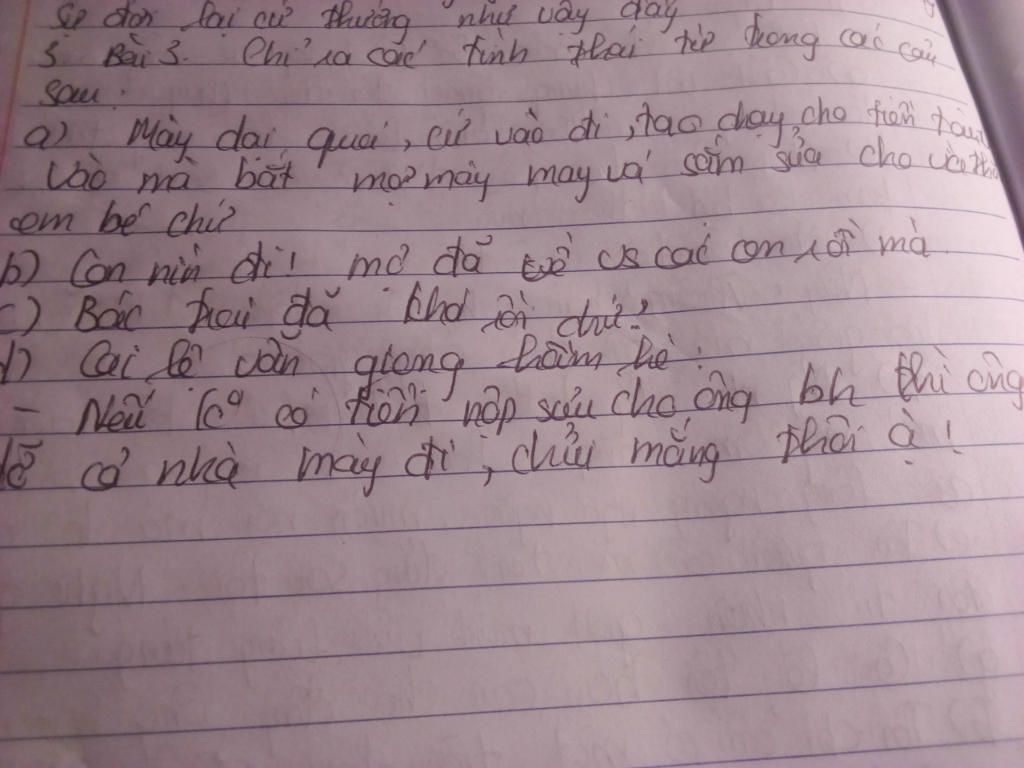 sự đời lại cứ thường như vậy đấy
3. Bài 3. Chỉ ra các tình thái từ trong các câu
sau:
a) Mày dại quá, cứ vào đi, tao chạy cho tiền tàu.
Vào mà bắt mợ mày may vá sắm sửa cho và thăm
em bé chứ
b) Con nín đi! mợ đã về vs các con rồi mà
c) Bác trai đã khá rồi chứ?
d) Cai lệ vẫn giọng hầm hè:
- Nếu k có tiền nộp sưu cho ông bh thì ông
dỡ cả nhà mày đi, chửi mắng thôi à!